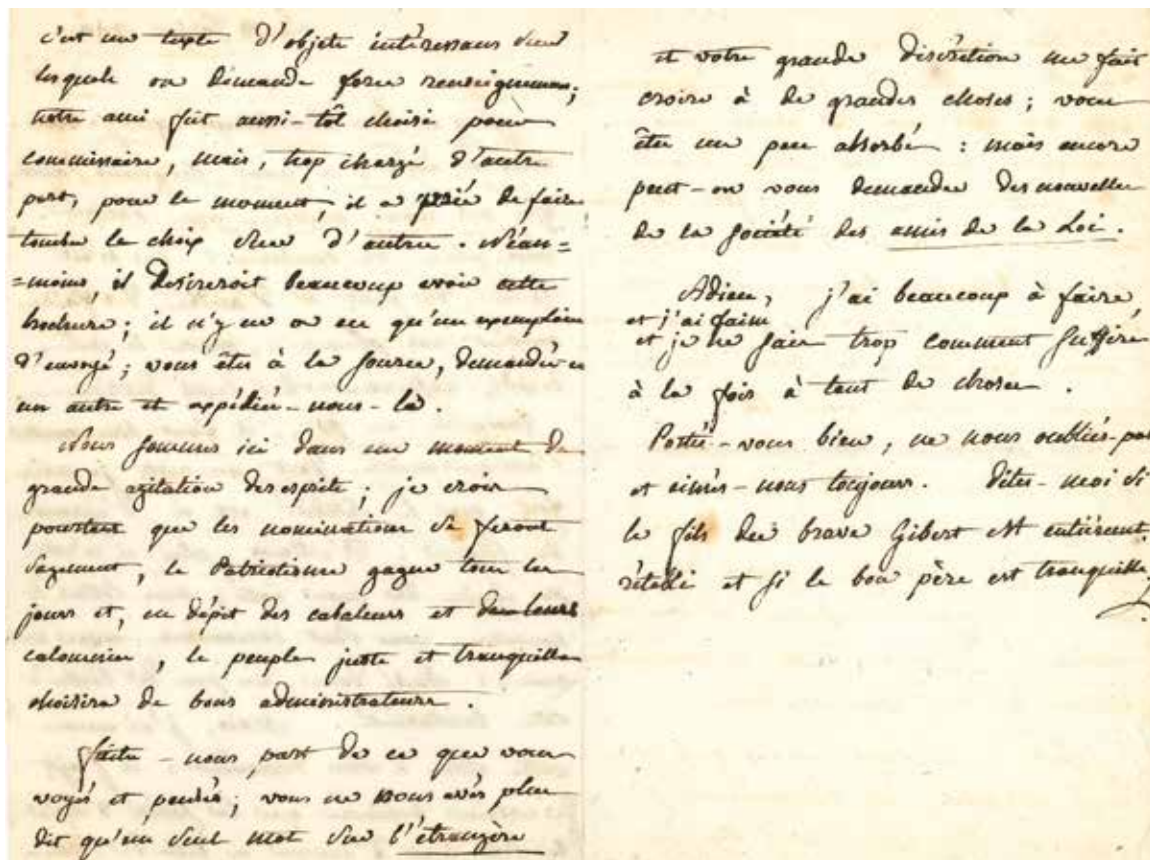 c'est un texte d'objets intéressans sur
lesquels on demande force renseignemens;
notre ami fut aussi-tôt choisi pour
commissaire, mais, trop chargé d'autre
part, pour le moment, il a prié de faire
tomber le choix sur d'autre. Néan=
=moins, il desireroit beaucoup avoir cette
brochure; il n'y en a eu qu'un exemplaire
d'envoyé; vous êtes à la source, demandés-en
un autre et expédiés-nous-la.
Nous sommes ici dans un moment de
grande agitation des esprits; je crois
pourtant que les nominations se feront
sagement, le Patriotisme gagne tous les
jours et, en dépit des cabaleurs et de leurs
calomnies, le peuple juste et tranquille
choisira de bons administrateurs.
Faites-nous part de ce que vous
voyés et pensés; vous ne nous avés plus
dit qu'un seul mot sur l'étrangère
et votre grande discrétion me fait
croire à de grandes choses; vous
êtes un peu absorbé: mais encore
peut-on vous demander des nouvelles
de la société des amis de la Loi.
Adieu, j'ai beaucoup à faire,
et j'ai faim
et je ne sais trop comment suffire
à la fois à tant de choses.
Portés-vous bien, ne nous oubliés-pas
et aimés-nous toujours. Dites-moi si
le fils du brave Gibert est entièrement
rétabli et si le bon père est tranquille.